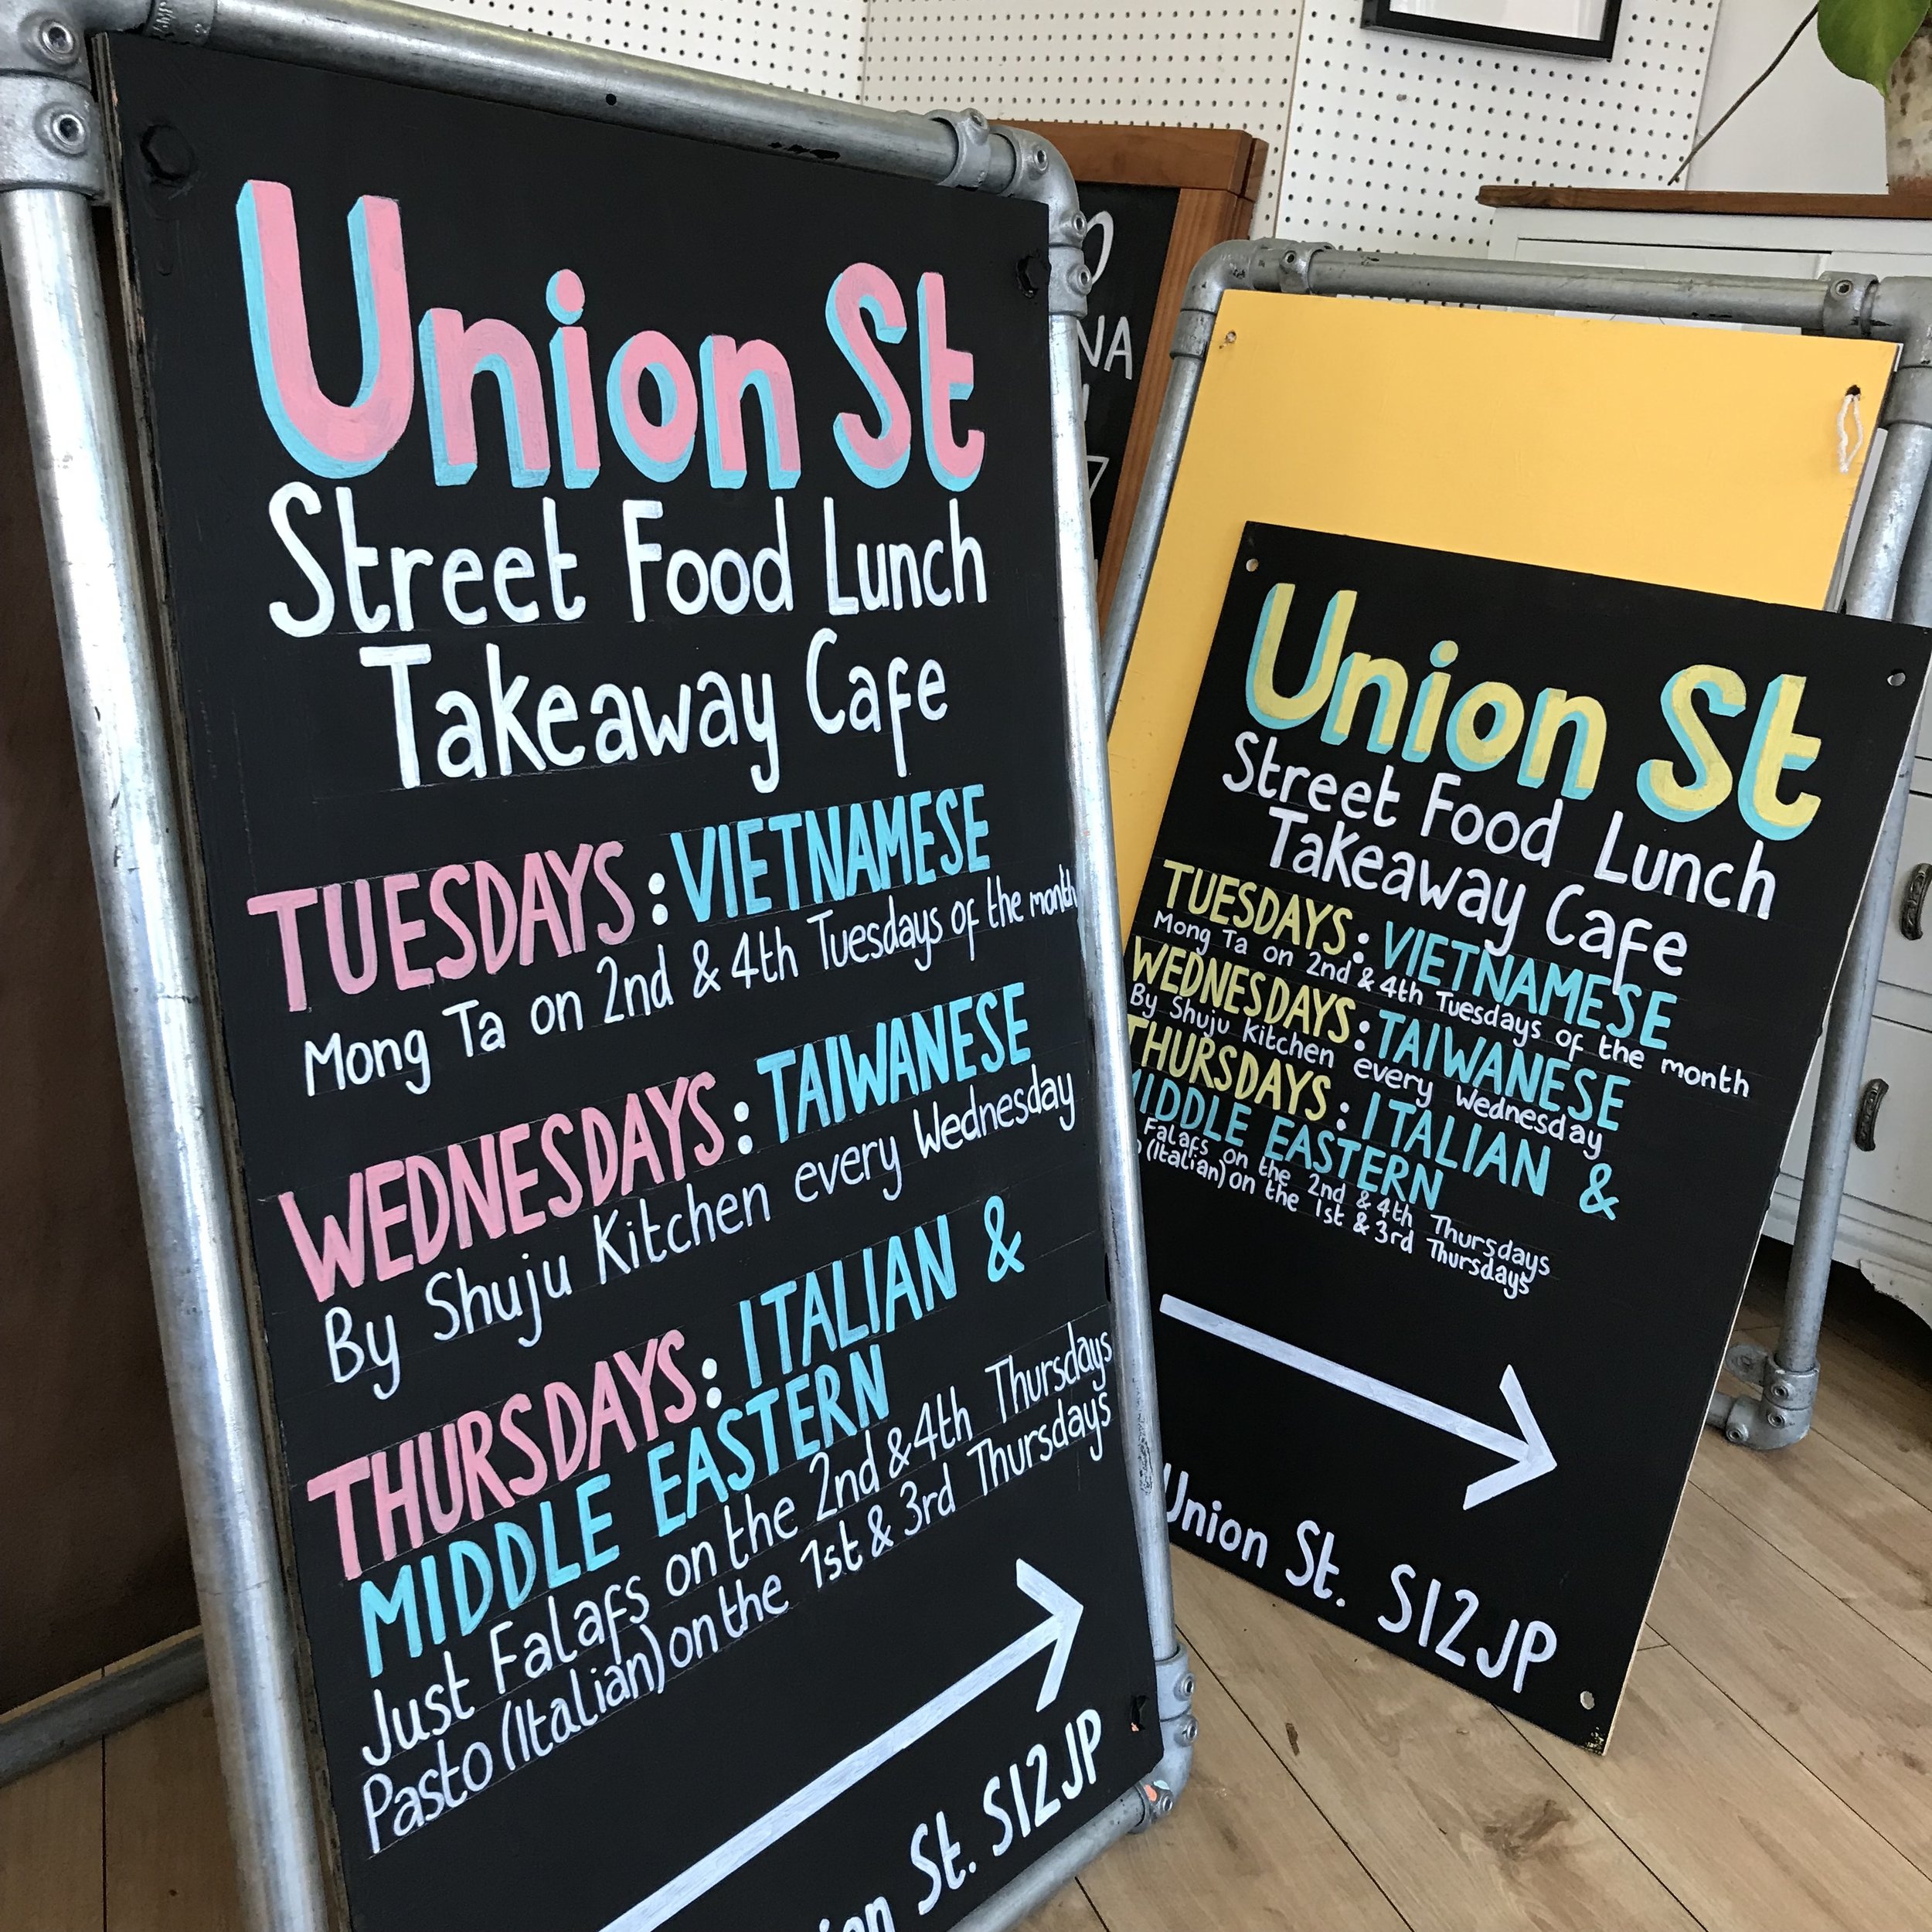 Union St
Street Food Lunch
Takeaway Cafe
TUESDAYS: VIETNAMESE
Mong Ta on 2nd & 4th Tuesdays of the month
WEDNESDAYS: TAIWANESE
By Shuju Kitchen every Wednesday
THURSDAYS: ITALIAN &
MIDDLE EASTERN
Just Falafs on the 2nd & 4th Thursdays
Pasto (Italian) on the 1st & 3rd Thursdays
St. S12JP
Union St
Street Food Lunch
Takeaway Cafe
TUESDAYS: VIETNAMESE
Mong Ta on 2nd & 4th Tuesdays of the month
WEDNESDAYS: TAIWANESE
By Shuju Kitchen every Wednesday
THURSDAYS: ITALIAN &
MIDDLE EASTERN
Falafs on the 2nd & 4th Thursdays
(Italian) on the 1st & 3rd Thursdays
Union St. S12JP